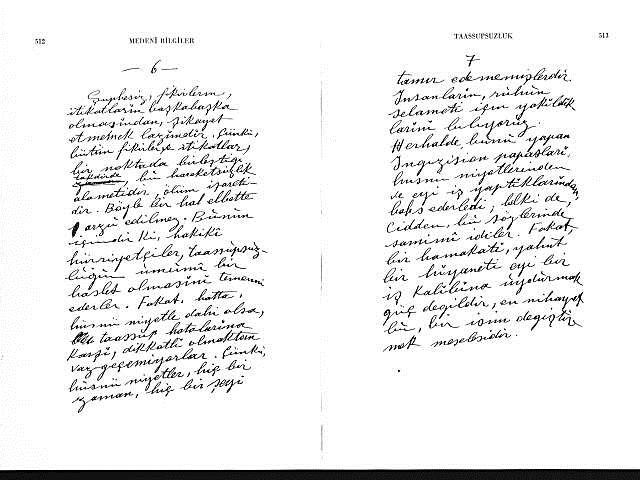 512
MEDENÎ BİLGİLER
— 6 —
Şüphesiz, fikirlerin,
itikatların başka başka
olmasından, şikâyet
etmemek lazımdır. Çünkü,
bütün fikirler ve itikatlar,
bir noktada birleştiği
takdirde, bu hareketsizlik
alâmetidir, ölüm işareti-
dir. Böyle bir hal elbette
arzu edilmez. Bunun
içindir ki, hakikî
hürriyetçiler, taassupsuz-
luğun umumî bir
haslet olmasını temenni
ederler. Fakat, hatta,
hüsnü niyetle dahi olsa,
taassup hatalarına
karşı, dikkatli olmaktan
vazgeçemiyorlar. Çünkü,
hüsnü niyetler, hiç bir
zaman, hiç bir şeyi
TAASSUPSUZLUK
513
7
tamir edememişlerdir.
İnsanların, ruhun
selameti için yakıldık
larını biliyoruz.
Herhalde bunu yapan
Inquzision papasları,
hüsnü niyetlerinden
ve eyi iş yaptıklarından
bahsederlerdi; belki de,
cidden, bu sözlerinde
samimî idiler. Fakat,
bir hamakati, yahut
bir hıyaneti eyi bir
iş kalıbına uydurmak
güç değildir, en nihayet
bu, bir isim değiştir
mek meselesidir.